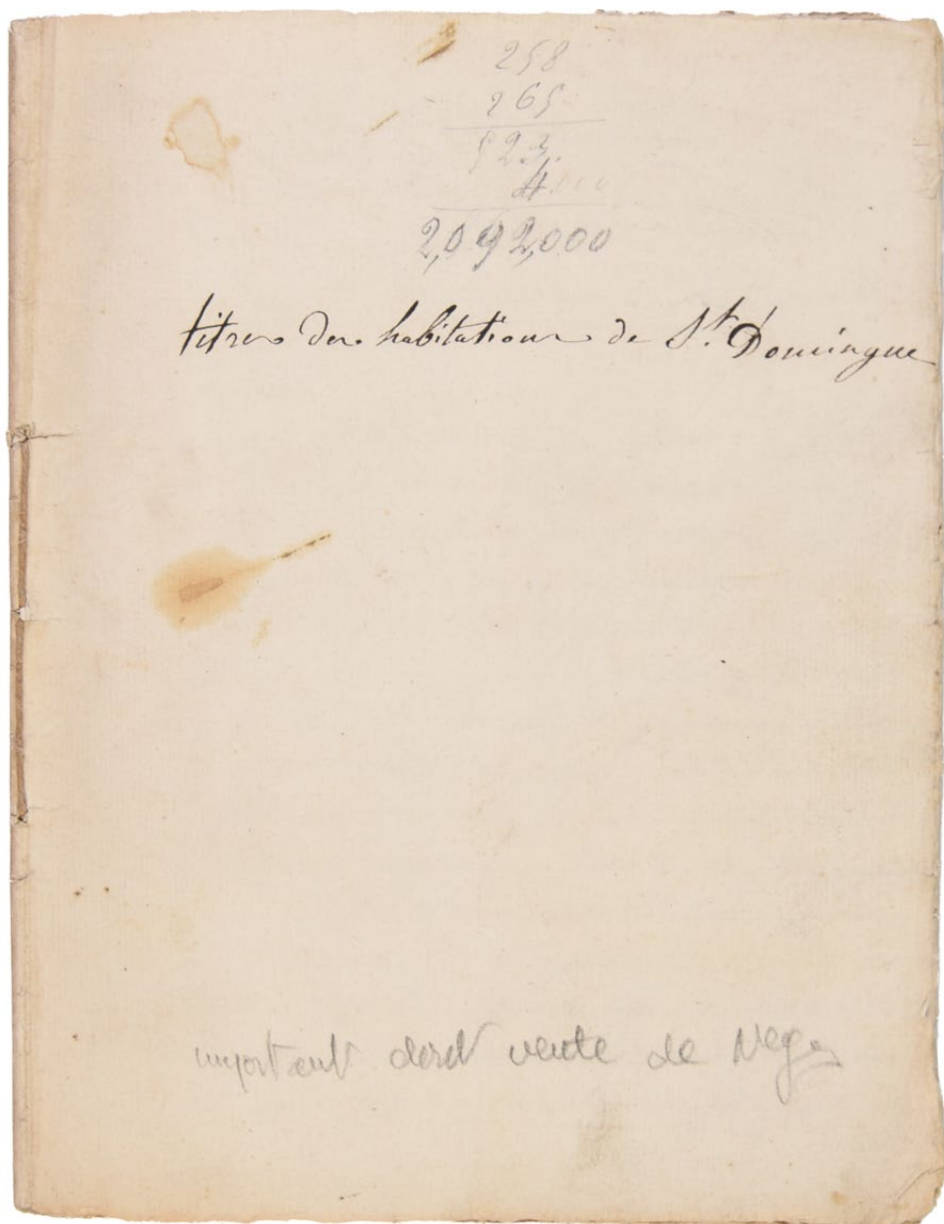 258
265
523.
4000
2,092,000
titres des habitations de St. Domingue
important dont vente de Neg